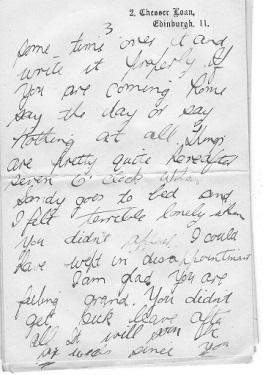 2, Chesser Loan,
Edinburgh, 11.
3
some time over it and
write it properly. If
You are coming home
say the day or say
nothing at all. Things
are pretty quite hereafter
seven o clock when
Sandy goes to bed and
I felt terrible lonely when
You didn't appear. I could
have wept in disappointment
I am glad You are
feeling grand. You didn't
get back leave after
all It will soon be
six weeks since you